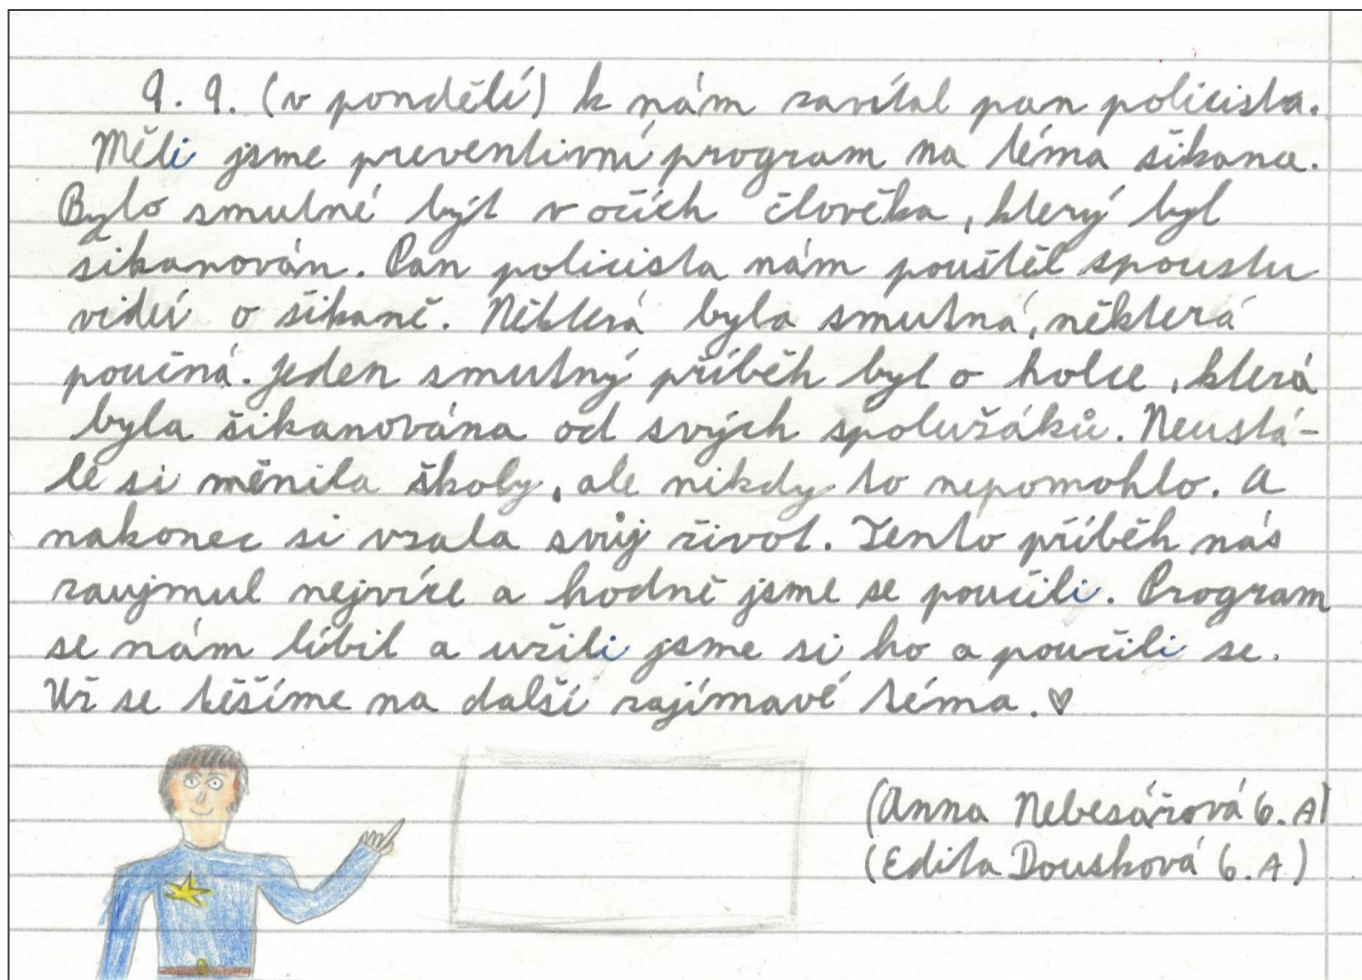 9. 9. (v pondělí) k nám zavítal pan policista.
Měli jsme preventivní program na téma šikana.
Bylo smutné být v očích člověka, který byl
šikanován. Pan policista nám pouštěl spoustu
videí o šikaně. Některá byla smutná, některá
poučná. Jeden smutný příběh byl o holce, která
byla šikanována od svých spolužáků. Neustá-
le si měnila školy, ale nikdy to nepomohlo. A
nakonec si vzala svůj život. Tento příběh nás
zaujmul nejvíce a hodně jsme se poučili. Program
se nám líbil a užili jsme si ho a poučili se.
Už se těšíme na další zajímavé téma. ♥
(Anna Nebesářová 6.A)
(Edita Dousková 6.A)